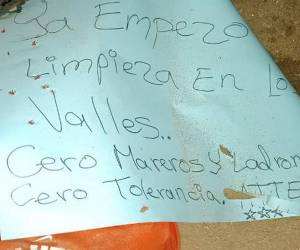 Ya Empezo
Limpieza En Lo
Valles..
Cero Mareros y Ladron
Cero Tolerancia. ATTE